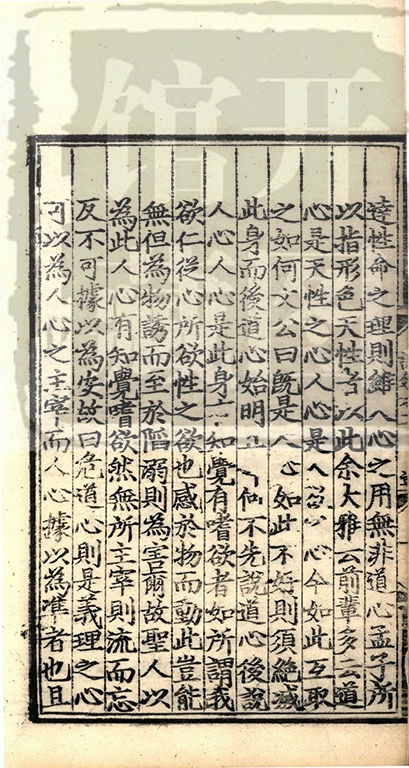 達性命之理則雖人心之用無非道心孟子所
以指形色天性者以此余大雅云前輩多云道
心是天性之心人心是人欲之心今如此互取
之如何文公曰既是人心如此不好則須絕滅
此身而後道心始明 不先說道心後說
人心人心是此身 知覺有嗜欲者如所謂我
欲仁從心所欲性之欲也感於物而動此豈能
無但為物誘而至於陷溺則為害爾故聖人以
為此人心有知覺嗜欲然無所主宰則流而忘
反不可據以為安故曰危道心則是義理之心
可以為人心之主宰而人心據以為准者也且
馆开